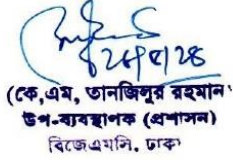 (কে,এম, তানজিলুর রহমান
উপ-ব্যবস্থাপক (প্রশাসন)
বিজেএমসি, ঢাকা